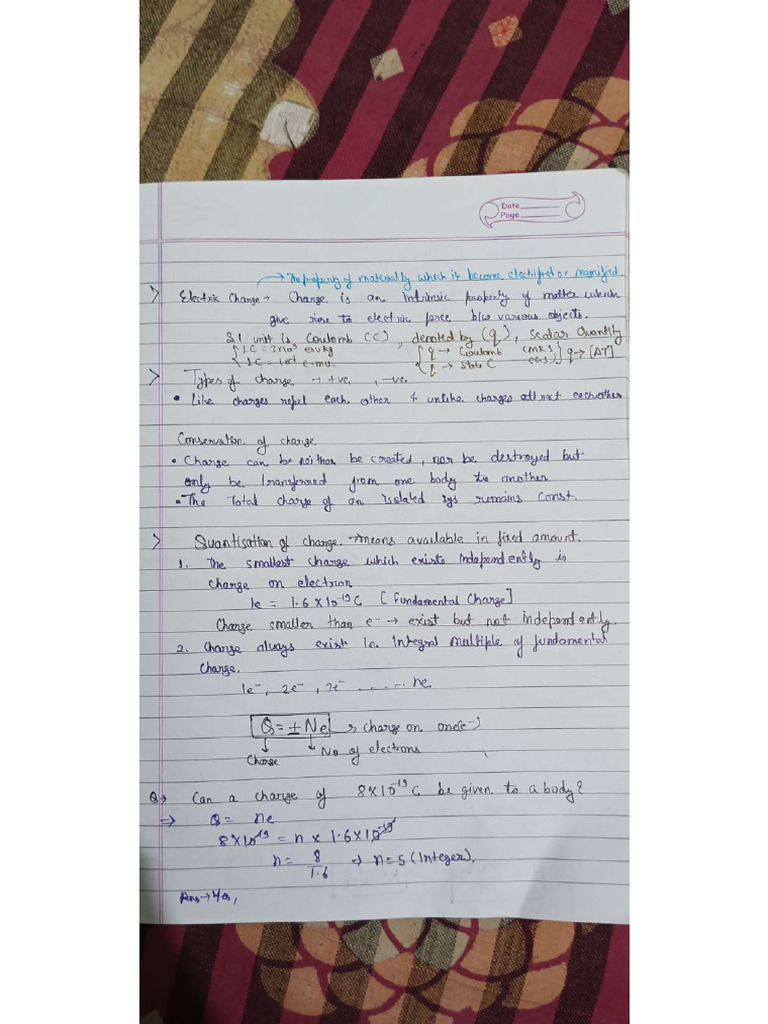 Date
Page
→ The property of material by which it become electrified or magnified
> Electric Charge → Charge is an intrinsic property of matter which
give rise to electric force b/w various objects.
SI unit is Coulomb (C), denoted by (q), Scalar Quantity
1C = 3×10⁹ esu
q → Coulomb (MKS)
q → Stat C (CGS) q → [AT]
1C = e.m.u.
> Types of charge → +ve , -ve
• Like charges repel each other & unlike charges attract each other
Conservation of charge
• Charge can be neither be created, nor be destroyed but
only be transferred from one body to another
• The Total charge of an Isolated sys remains const.
> Quantisation of charge → means available in fixed amount.
1. The smallest charge which exists Independently is
charge on electron
1e = 1.6×10⁻¹⁹C [Fundamental Charge]
Charge smaller than e⁻ → exist but not independently.
2. Charge always exist In Integral Multiple of fundamental
charge.
1e⁻, 2e⁻, 3e⁻ ....... ne
Q = ± Ne → charge on one(e⁻)
↓ Charge ↓ No of electrons
Q→ Can a charge of 8×10⁻¹⁹ C be given to a body?
⇒ Q = ne
8×10⁻¹⁹ = n × 1.6×10⁻¹⁹
n = 8/1.6 ⇒ n=5 (Integer).
Ans → Yes,